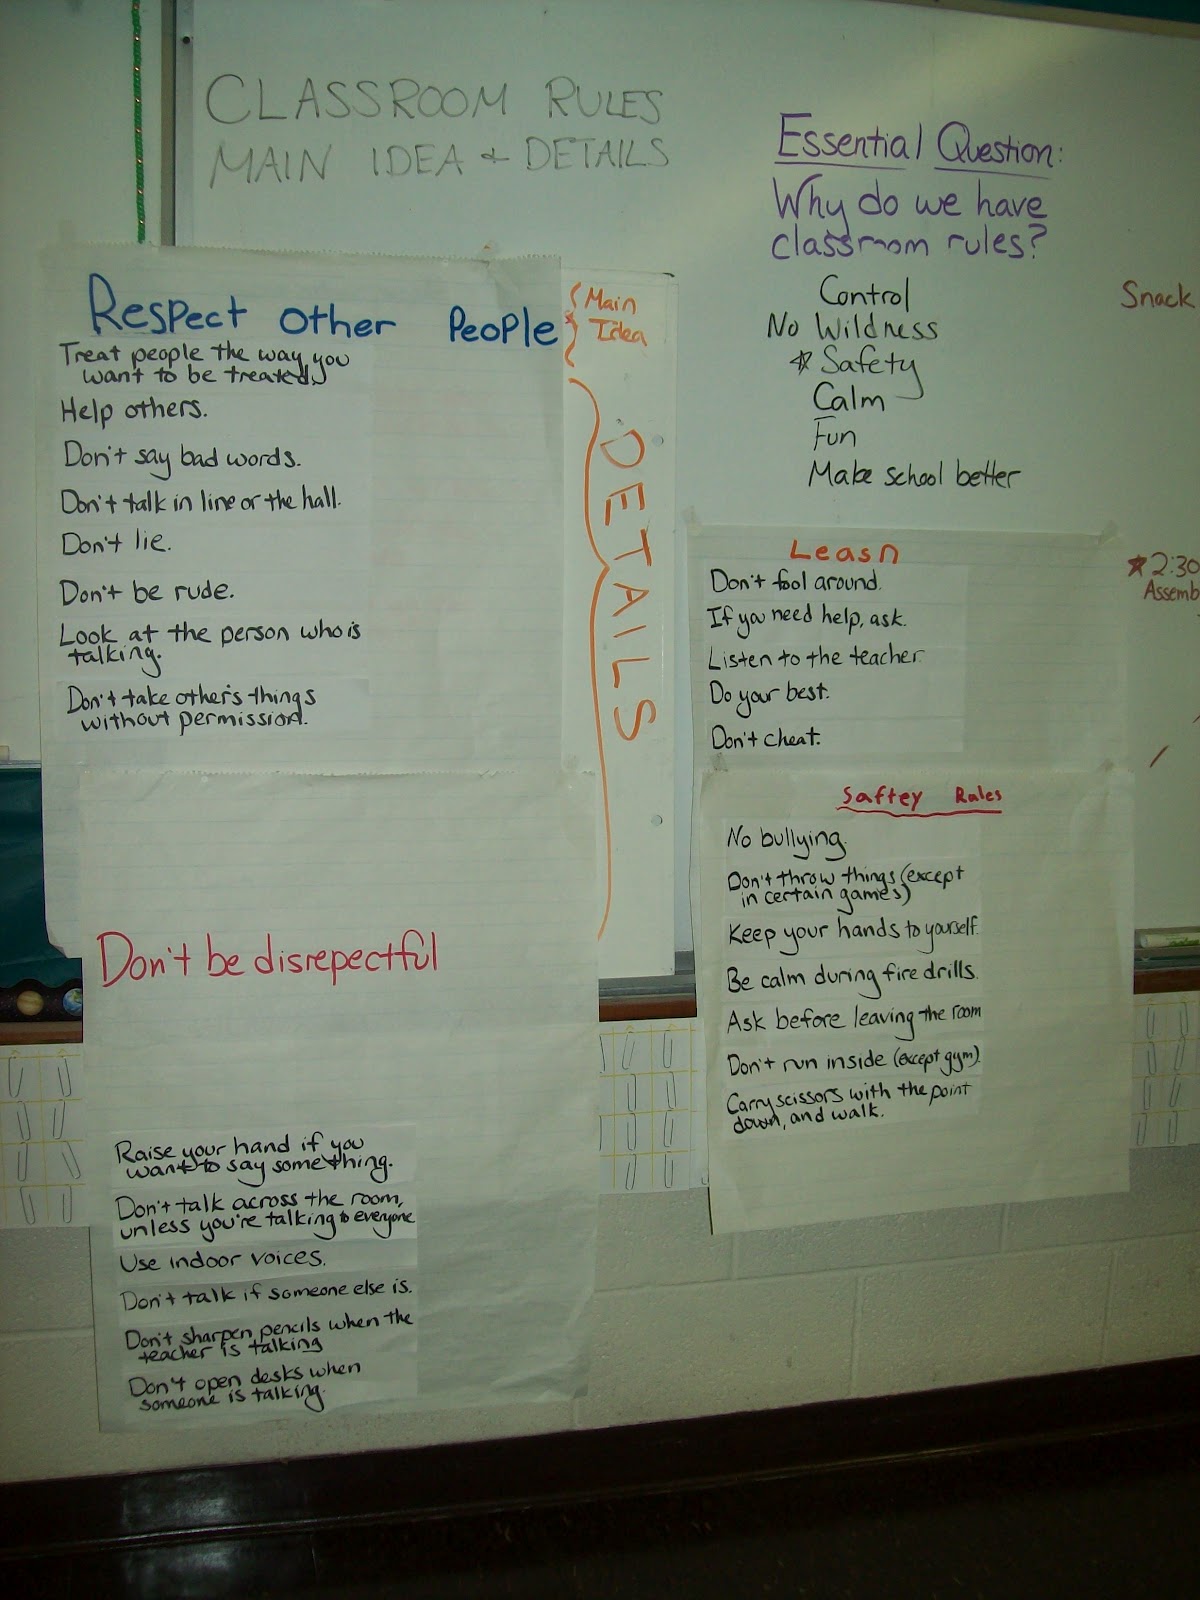 CLASSROOM RULES
MAIN IDEA & DETAILS
Essential Question:
Why do we have
classroom rules?
Control
No Wildness
☆ Safety
Calm
Fun
Make school better
Snack
★2:30
Assemb
Respect other People
Main
Idea
DETAILS
Treat people the way you
want to be treated.
Help others.
Don't say bad words.
Don't talk in line or the hall.
Don't lie.
Don't be rude.
Look at the person who is
talking.
Don't take other's things
without permission.
Don't be disrepectful
Raise your hand if you
want to say something.
Don't talk across the room,
unless you're talking to everyone
Use indoor voices.
Don't talk if someone else is.
Don't sharpen pencils when the
teacher is talking
Don't open desks when
someone is talking.
Leasn
Don't fool around.
If you need help, ask.
Listen to the teacher.
Do your best.
Don't cheat.
Saftey Rules
No bullying.
Don't throw things (except
in certain games)
Keep your hands to yourself.
Be calm during fire drills.
Ask before leaving the room
Don't run inside (except gym).
Carry scissors with the point
down, and walk.